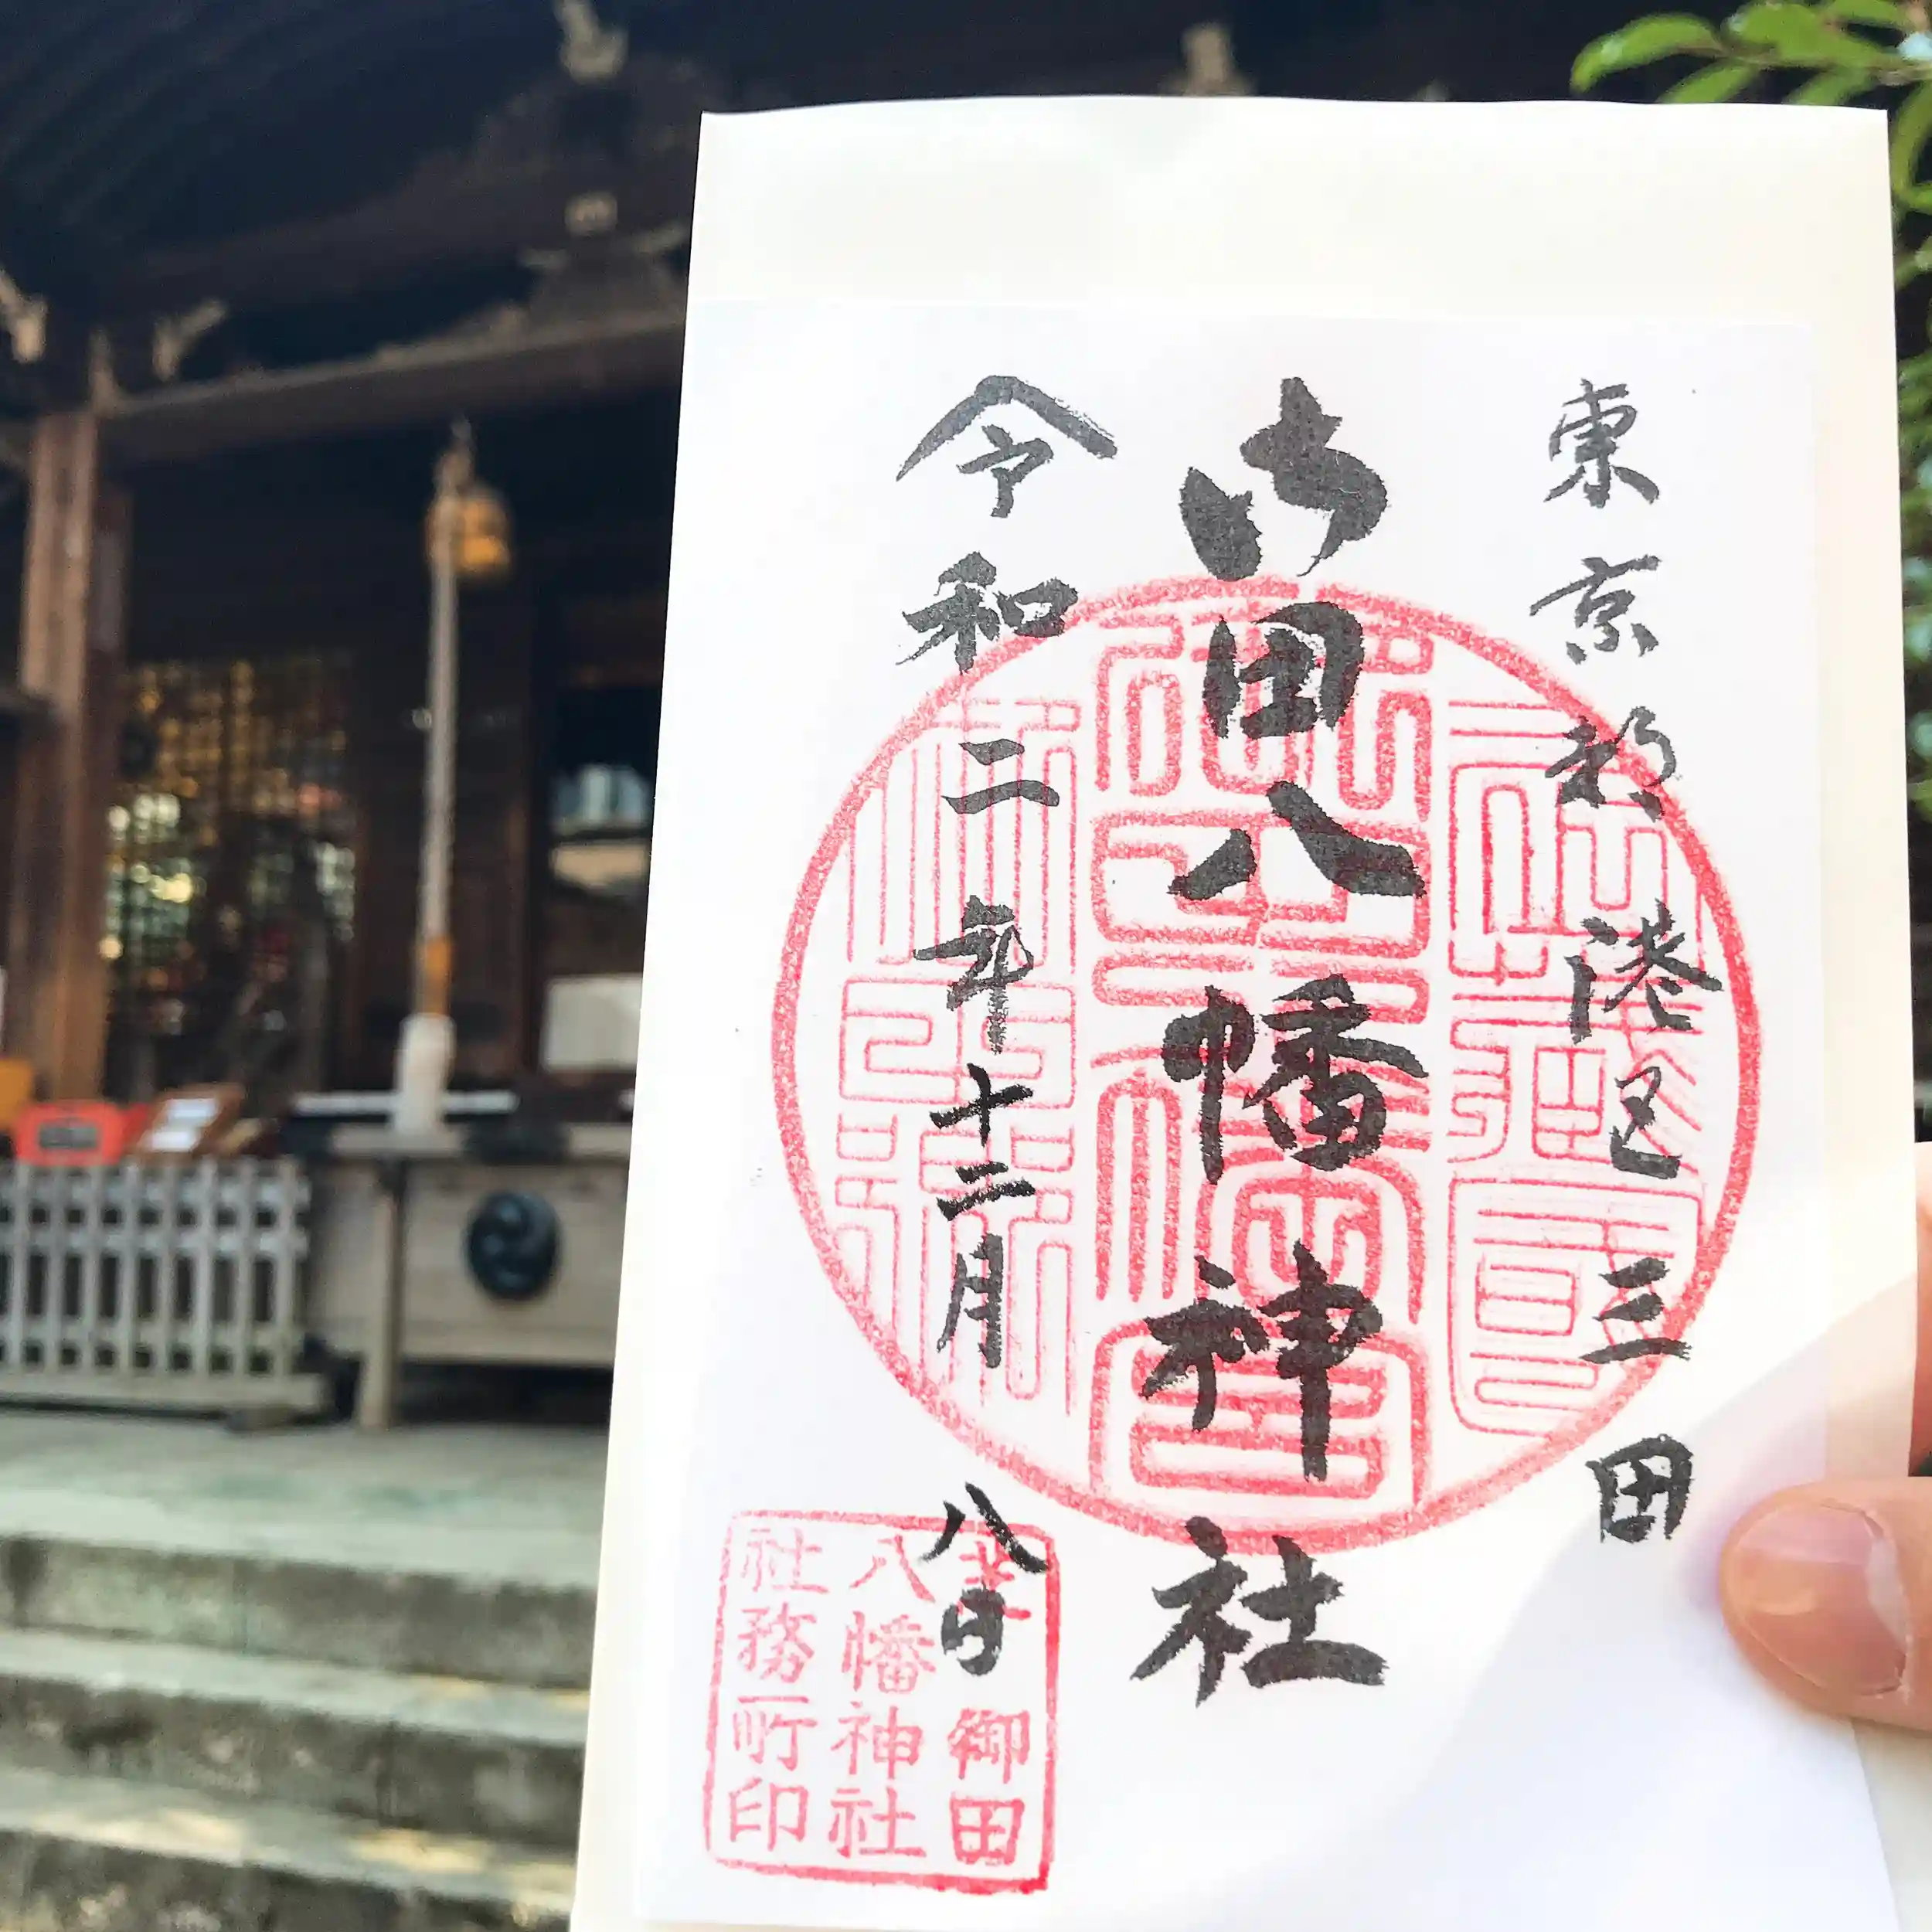 東京都港区三田
御田八幡神社
令和二年十二月八日
御田
八幡神社
社務所印